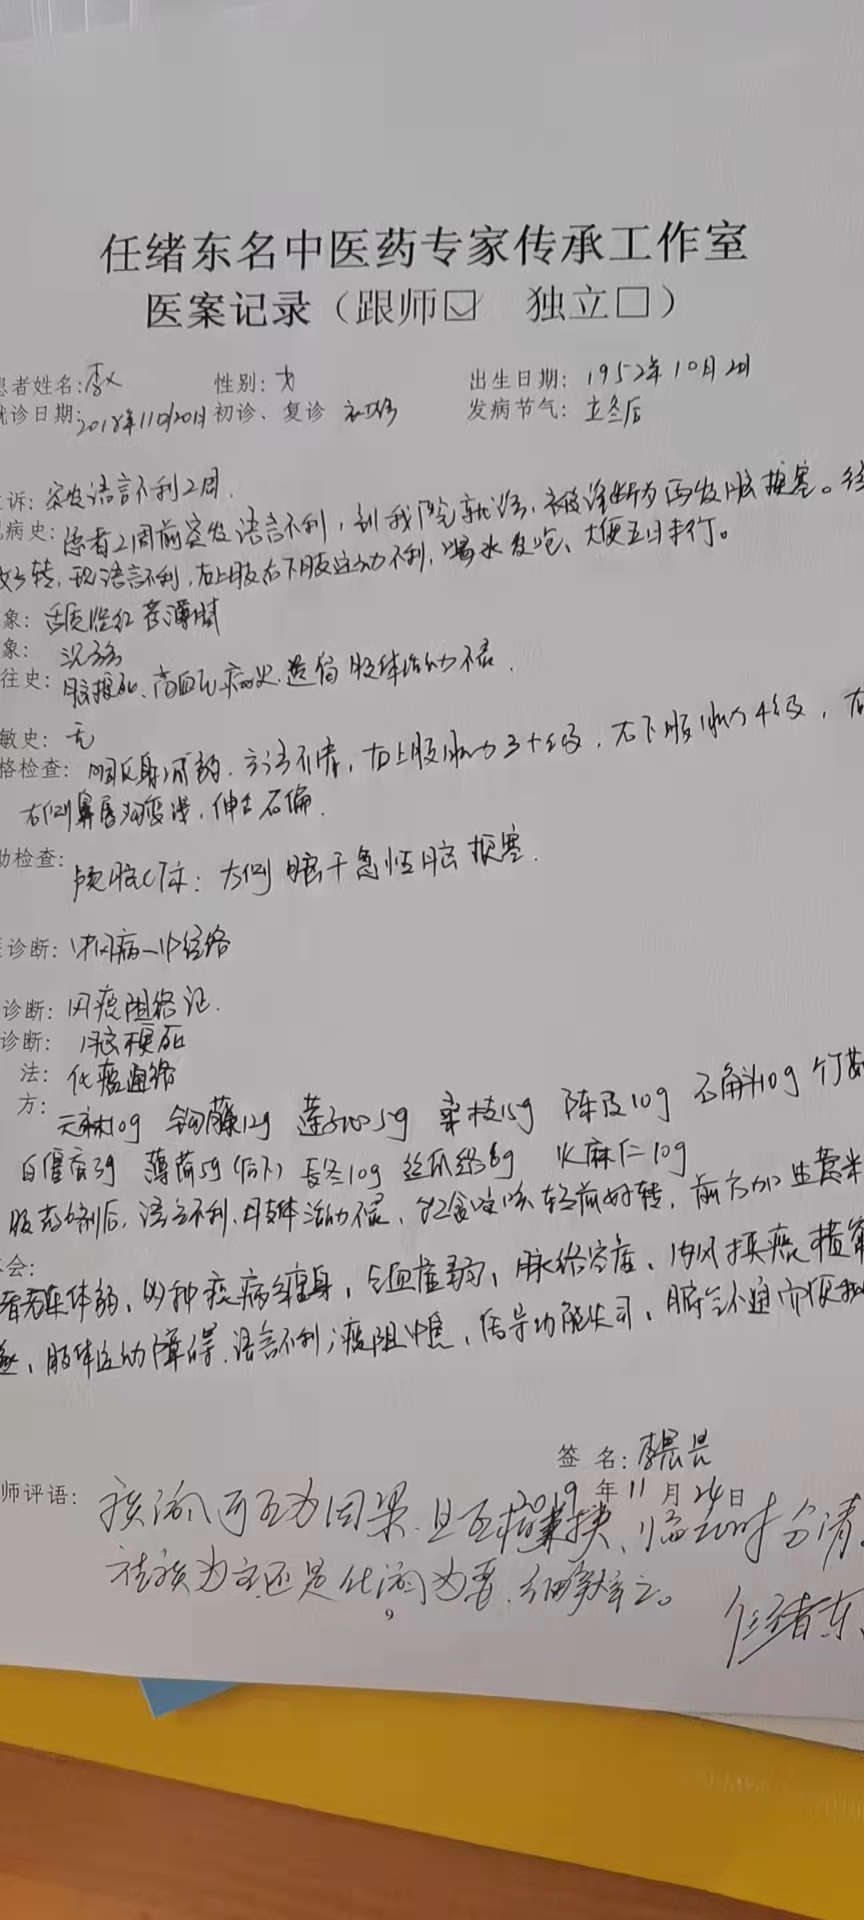 任绪东名中医药专家传承工作室
医案记录（跟师☑ 独立□）
患者姓名: 李 性别: 出生日期: 1952年10月
就诊日期: 2018年11月20日 初诊、复诊 初诊 发病节气: 立冬后
诉: 突发语言不利2周.
病史: 患者2周前突发语言不利, 到我院就诊, 被诊断为再发脑梗塞。经
好转, 现语言不利, 右上肢右下肢运动不利, 喝水发呛、大便五日未行。
象: 舌质红苔薄腻
象: 沉弦
往史: 脑梗死、高血压病史, 遗留肢体活动不灵.
敏史: 无
格检查: 咽反射减弱. 言语不清, 右上肢肌力3+级, 右下肢肌力4级, 右
右侧鼻唇沟变浅, 伸舌右偏.
助检查: 颅脑CT示: 左侧脑干急性脑梗塞.
诊断: 中风病—中经络
诊断: 风痰阻络证.
诊断: 脑梗死
法: 化痰通络
方: 天麻10g 钩藤12g 莲子心5g 桑枝15g 陈皮10g 石斛10g 竹茹
白僵蚕3g 薄荷5g(后下) 麦冬10g 丝瓜络6g 火麻仁10g
服药6剂后, 语言不利, 肢体活动不灵, 饮食呛咳较前好转, 前方加生薏米
会:
体弱, 多种疾病缠身, 气血虚弱, 脉络空虚, 内风挟痰横窜
, 肢体运动障碍. 语言不利; 痰阻中焦, 传导功能失司, 腑气不通而便秘
签 名: 李晨
2019 年 11 月 24 日
师评语: 痰瘀可互为因果. 且互相兼挟、临证时分清.
祛痰为主还是化瘀为要, 细察之。
任绪东
9